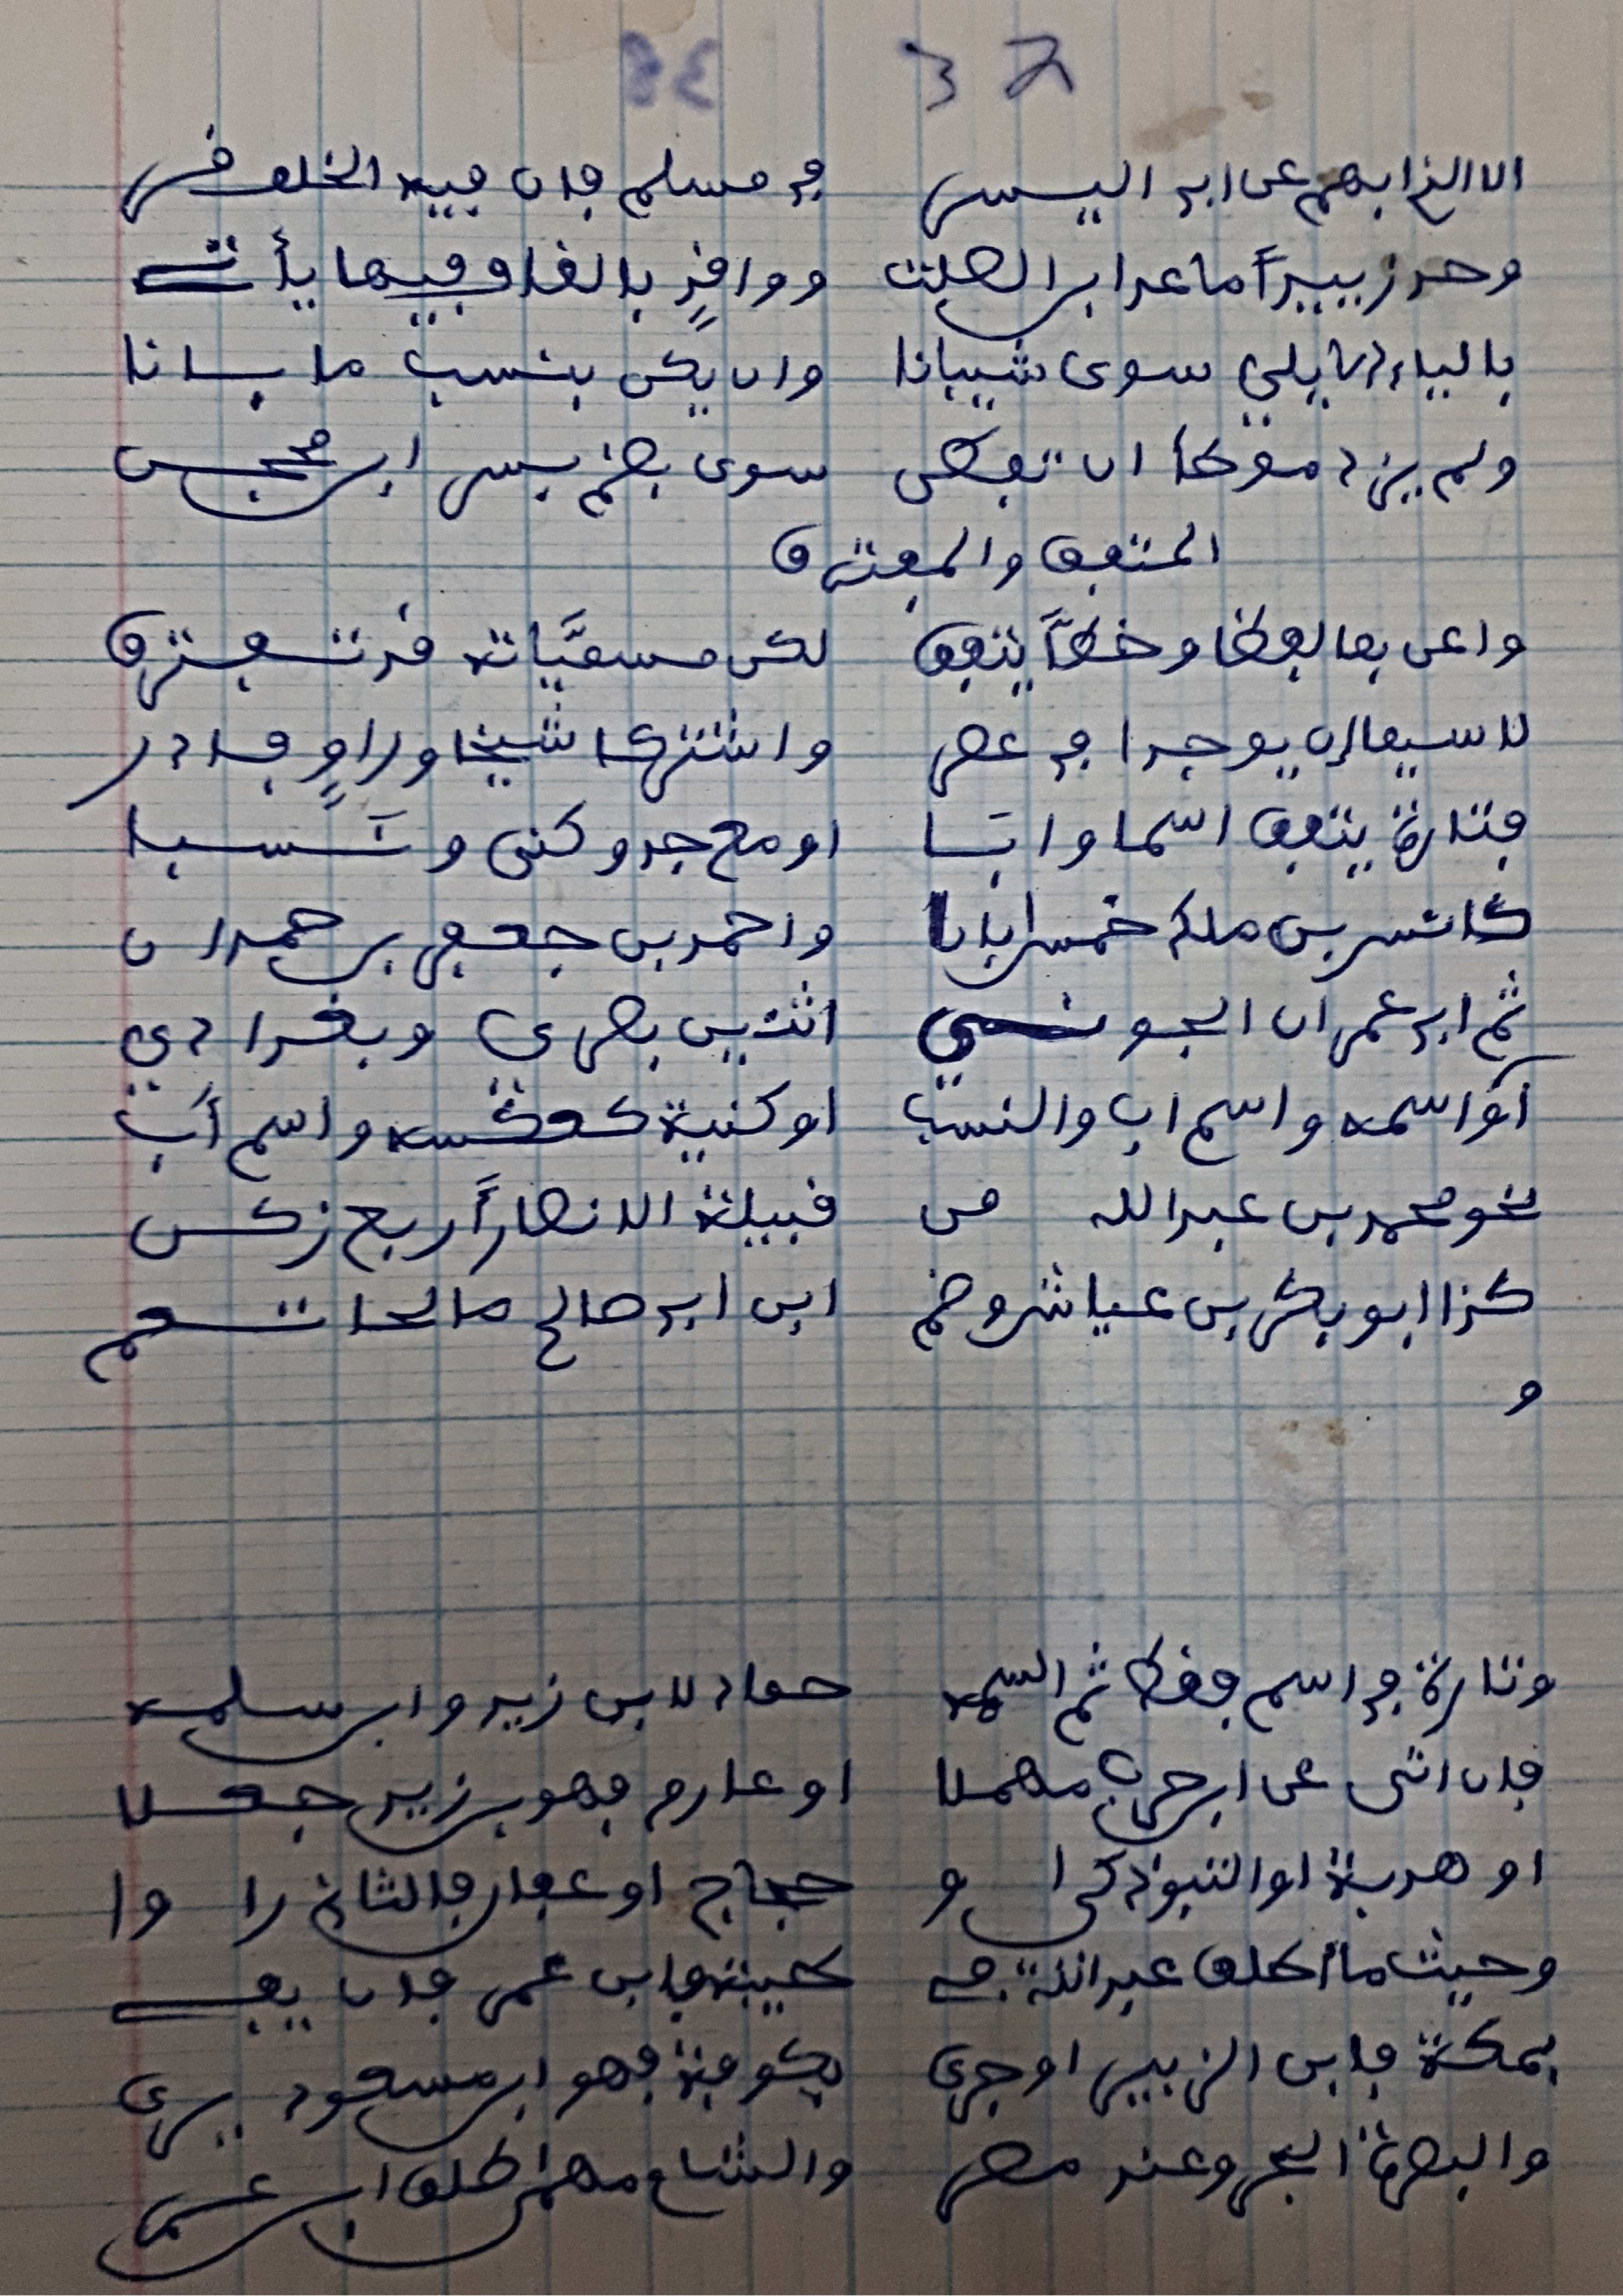 الا الذ ابهم عن ابي اليسر في مسلم فان فيه الخلف قر
وحد زبيدا ما عدا ابن الصلت ووافد بالقاف فيما يأتي
بالياء الايلي سوى شيبانا وان يكن بنسب ما بانا
ولم يزد موطأ ان تفطن سوى بضم بسر ابن محجن
المتفق والمفترق
واعن بما لفظا وخطا يتفق لكن مسميات قد تفترق
لا سيما ان يوجدا في عصر واشتركا شيخا وراو فادر
فتارة يتفق اسما وابا او مع جد وكنى ونسبا
كانس بن ملك خمس ابانا واحمد بن جعفر بن حمدان
ثم ابي عمران الجوني اثنين بصري وبغدادي
او اسمه واسم اب والنسب او كنية كعكسه واسم اب
نحو محمد بن عبد الله من قبيلة الانصار اربع زكن
كذا ابو بكر بن عياش وضم ابن ابي صالح صالحا تعم
و
وتارة في اسم فقط ثم السمه حماد لابن زيد وابن سلمه
فان اتى عن ابن حرب مهملا او عارم فهو بن زيد جعلا
او هدبة او التبوذكي او حجاج او عفان فالثاني راوا
وحيث ما اطلق عبد الله في طيبة فابن عمر فان يفي
بمكة فابن الزبير او جرى بكوفة فهو ابن مسعود يرى
والبصرة البحر وعند مصر والشام مهما اطلق ابن عمر